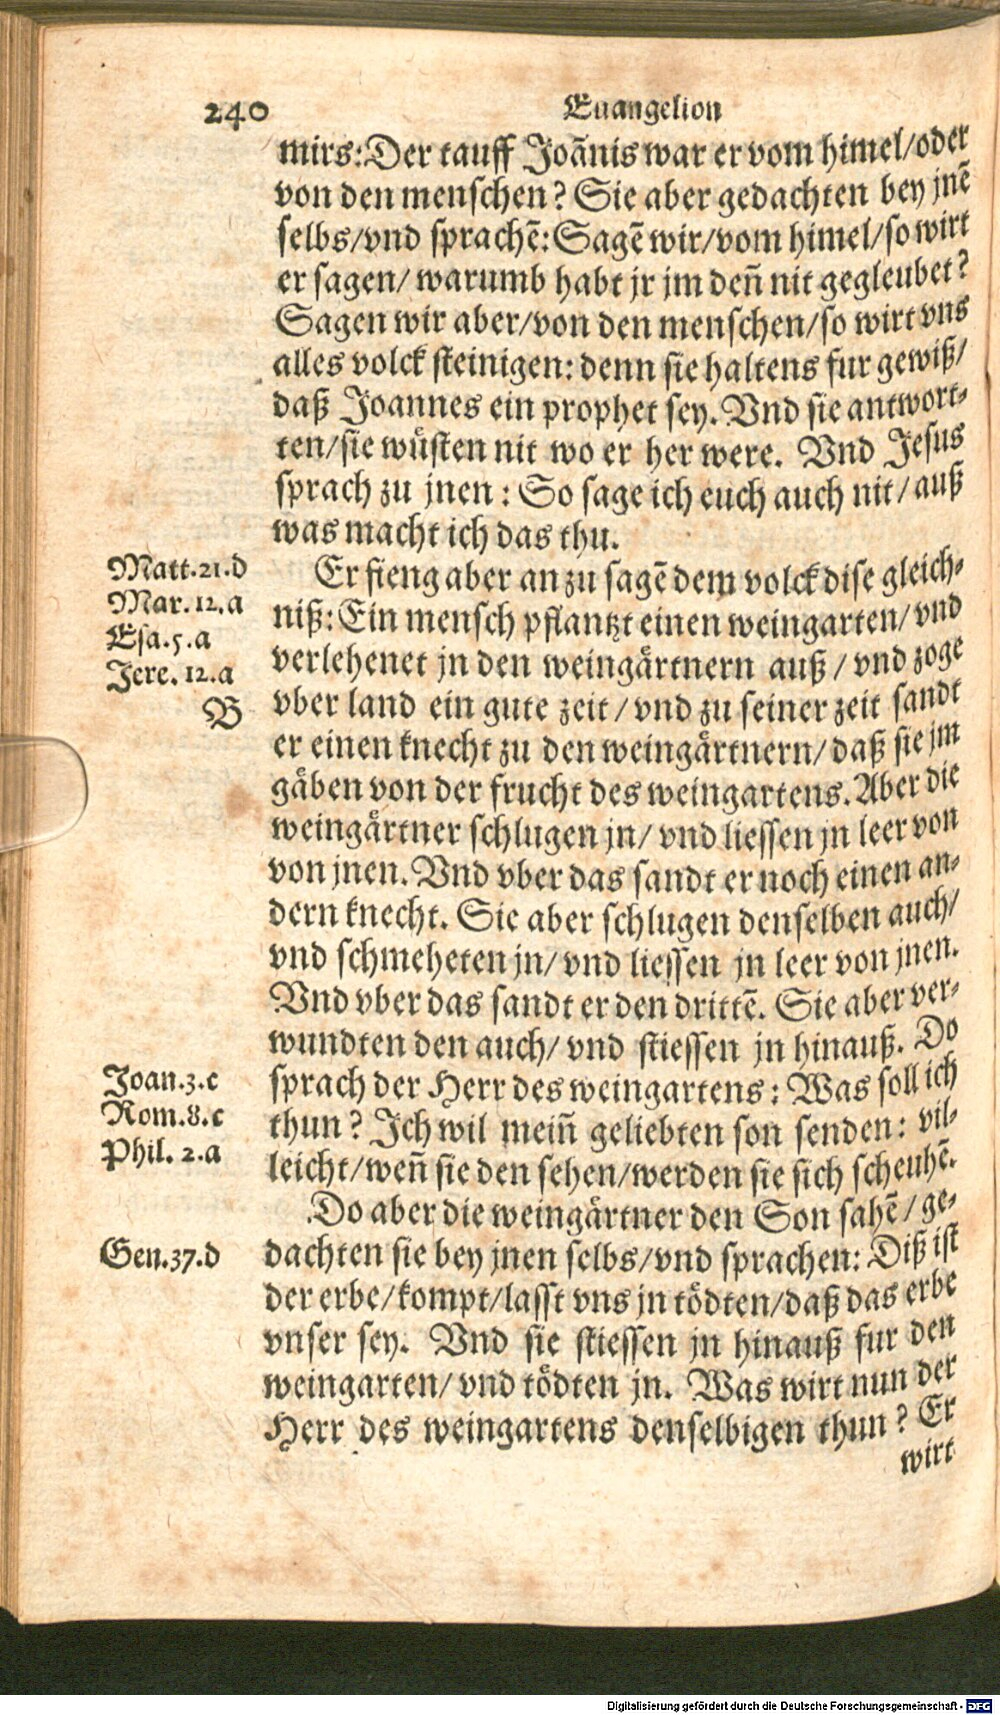 240 Euangelion
mirs: Der tauff Joānis war er vom himel/oder
von den menschen? Sie aber gedachten bey jnē
selbs/vnd sprachē: Sagē wir/vom himel/so wirt
er sagen/ warumb habt jr jm deñ nit gegleubet?
Sagen wir aber/von den menschen/so wirt vns
alles volck steinigen: denn sie haltens fur gewiß/
daß Joannes ein prophet sey. Vnd sie antwort-
ten/sie wüsten nit wo er her were. Vnd Jesus
sprach zu jnen: So sage ich euch auch nit/ auß
was macht ich das thu.
Matt.21.d
Mar.12.a
Esa.5.a
Jere.12.a
B
Er fieng aber an zu sagē dem volck dise gleich-
niß: Ein mensch pflantzt einen weingarten/ vnd
verlehenet jn den weingärtnern auß/ vnd zoge
vber land ein gute zeit/ vnd zu seiner zeit sandt
er einen knecht zu den weingärtnern/ daß sie jm
gäben von der frucht des weingartens. Aber die
weingärtner schlugen jn/ vnd liessen jn leer von
von jnen. Vnd vber das sandt er noch einen an-
dern knecht. Sie aber schlugen denselben auch/
vnd schmeheten jn/ vnd liessen jn leer von jnen.
Vnd vber das sandt er den drittē. Sie aber ver-
wundten den auch/ vnd stiessen jn hinauß. Do
Joan.3.c
Rom.8.c
Phil. 2.a
sprach der Herr des weingartens: Was soll ich
thun? Ich wil meiñ geliebten son senden: vil-
leicht/weñ sie den sehen/werden sie sich scheuhē.
Do aber die weingärtner den Son sahē/ ge-
Gen.37.d
dachten sie bey jnen selbs/vnd sprachen: Diß ist
der erbe/kompt/lasst vns jn tödten/daß das erbe
vnser sey. Vnd sie stiessen jn hinauß fur den
weingarten/ vnd tödten jn. Was wirt nun der
Herr des weingartens denselbigen thun? Er
wirt
Digitalisierung gefördert durch die Deutsche Forschungsgemeinschaft - DFG